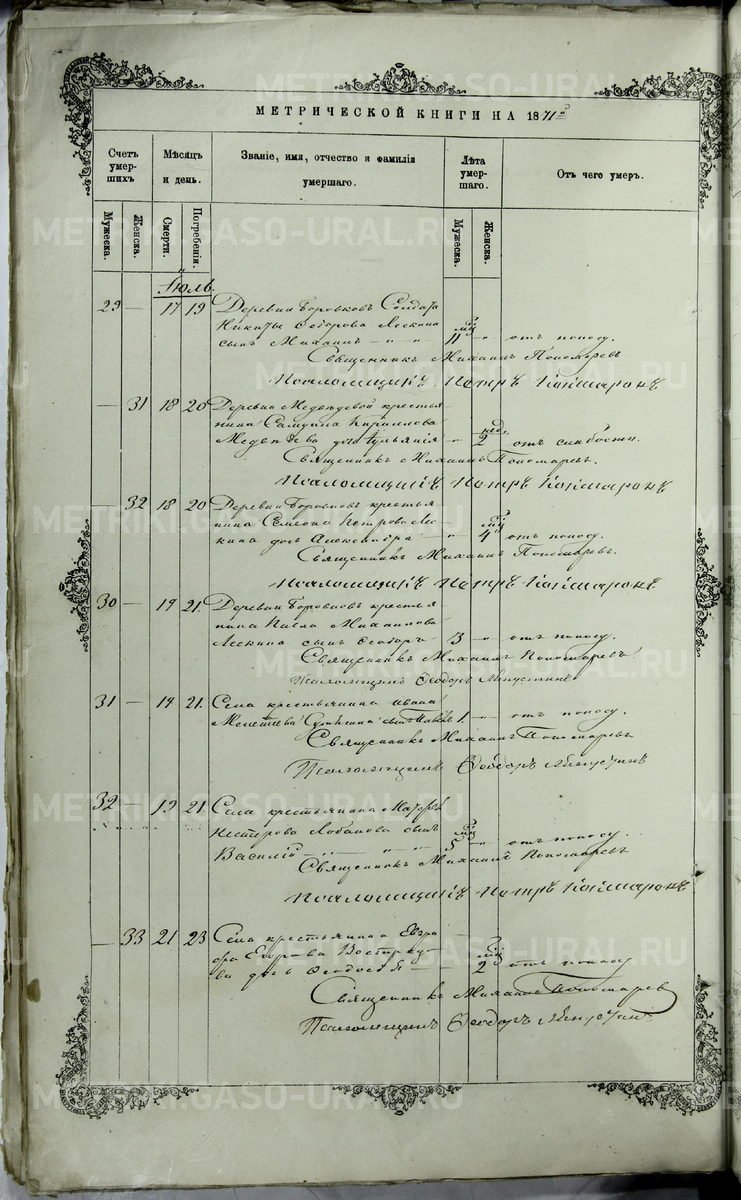 МЕТРИЧЕСКОЙ КНИГИ НА 1871й
Счетъ умер-шихъ
Мѣсяцъ и день.
Званіе, имя, отчество и фамилія умершаго.
Лѣта умер-шаго.
Отъ чего умеръ.
Мужеска.
Женска.
Смерти.
Погребенія.
Мужеска.
Женска.
Іюль.
29 — 17 19 Деревни Боровковъ Солдата
Никиты Ѳедорова Лескина мц
сынъ Михаилъ — " — " 11 " отъ поносу.
Священникъ Михаилъ Пономаревъ
Псаломщикъ Петръ
— 31 18 20 Деревни Медвѣдевой крестья-
нина Кириллова нед.
Медвѣдева дочь Ульянія " 2 отъ слабости.
Священникъ Михаилъ Пономаревъ.
Псаломщикъ Петръ
— 32 18 20 Деревни Боровковъ крестья
нина Семена Петрова Лес мц
кина дочь Александра — " 4 отъ поносу.
Священникъ Михаилъ Пономаревъ.
Псаломщикъ Петръ
30 — 19 21. Деревни Боровковъ крестья
нина Павла Михаилова
Лескина сынъ Ѳеодоръ 3 " отъ поносу.
Священникъ Михаилъ Пономаревъ
Псаломщикъ Ѳеодоръ
31 — 19 21. Села крестьянина Ивана
сынъ 1. " отъ поносу.
Священникъ Михаилъ Пономаревъ
Псаломщикъ Ѳеодоръ
32 — 19 21. Села крестьянина
Нестерова Лобанова сынъ мц
Василій — " — " — 5 " отъ поносу.
Священникъ Михаилъ Пономаревъ
Псаломщикъ Петръ
— 33 21 23 Села крестьянина Евгра
фа Егорова мц
ва дочь Ѳеодосья — — 2 отъ поносу
Священникъ Михаилъ Пономаревъ
Псаломщикъ Ѳеодоръ
METRIKI.GASO-URAL.RU